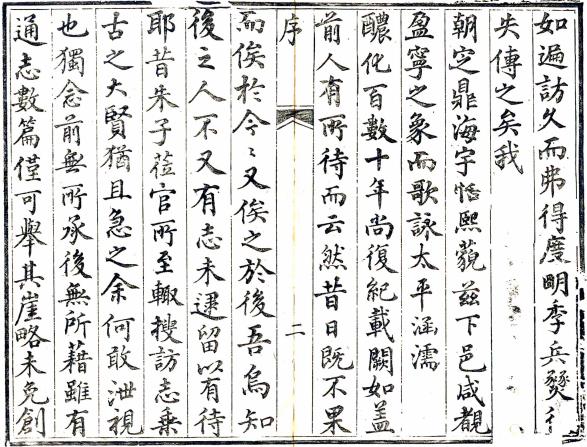 如遍訪久而弗得度明季兵燹
失傳之矣我
朝定鼎海宇恬熙藐茲下邑咸覩
盈寧之象而歌詠太平涵濡
醲化百數十年尚復紀載闕如蓋
前人有所待而云然昔日既不果
序
二
而俟於今今又俟之於後吾烏知
後之人不又有志未逮留以有待
耶昔朱子蒞官所至輙搜訪志乗
古之大賢猶且急之余何敢泄視
也獨念前無所承後無所藉雖有
通志數篇僅可舉其崖略未免創